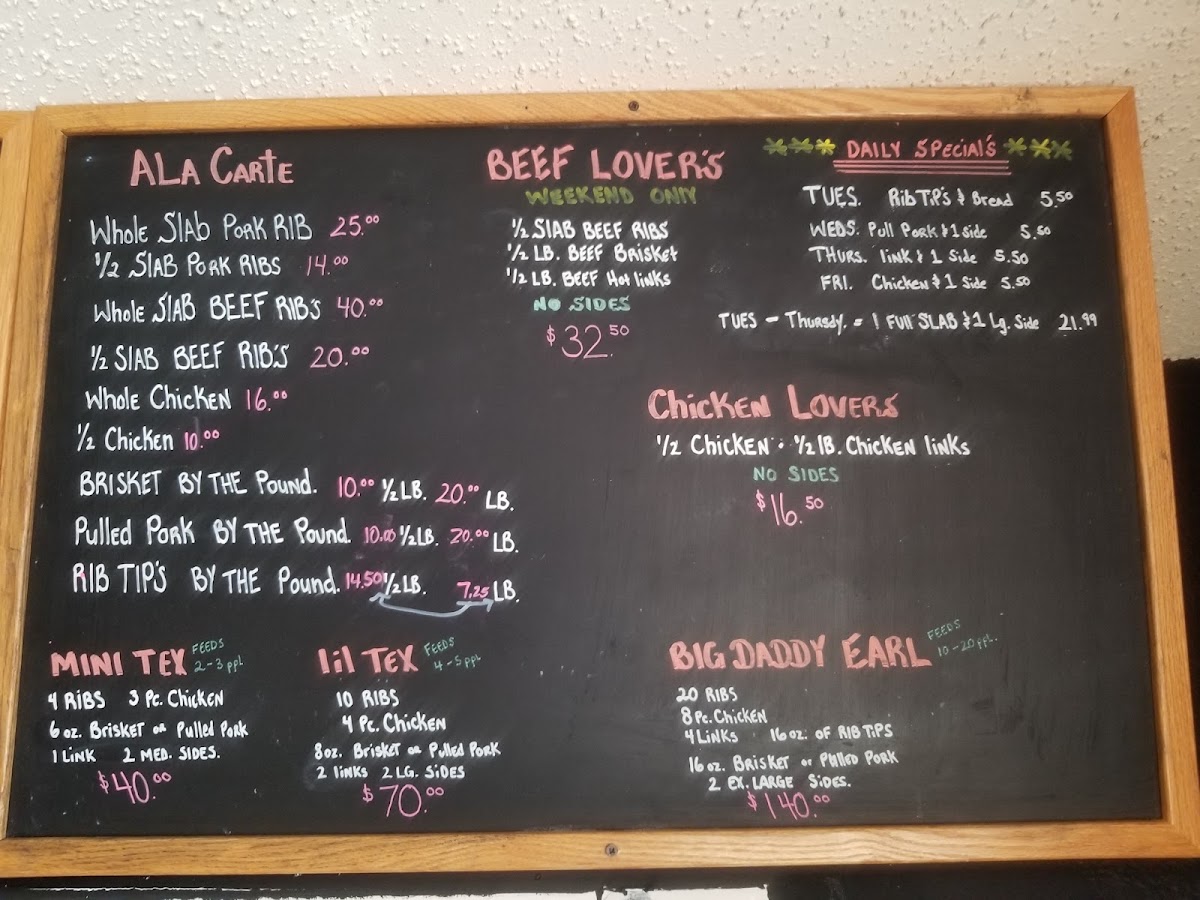 ALA CARTE
Whole Slab PORK RIB 25.00
1/2 SLAB PORK RIBS 14.00
Whole SLAB BEEF RIB'S 40.00
1/2 SLAB BEEF RIB'S 20.00
Whole Chicken 16.00
1/2 Chicken 10.00
BRISKET BY THE Pound. 10.00 1/2 LB. 20.00 LB.
Pulled PORK BY THE Pound. 10.00 1/2 LB. 20.00 LB.
RIB TIP'S BY THE Pound. 14.50 1/2 LB. 7.25 LB.
BEEF LOVER'S
WEEKEND ONLY
1/2 SLAB BEEF RIBS
1/2 LB. BEEF Brisket
1/2 LB. BEEF Hot links
NO SIDES
$32.50
*** DAILY SPECIAL'S ***
TUES. Rib TiP's & Bread 5.50
WEDS. Pull Pork & 1 Side 5.50
THURS. link & 1 Side 5.50
FRI. Chicken & 1 Side 5.50
TUES - Thursdy. = 1 FUll SLAB & 1 Lg. Side 21.99
Chicken LOVERS
1/2 Chicken · 1/2 lB. Chicken links
NO SIDES
$16.50
MINI TEX FEEDS
2-3 ppl
4 RIBS 3 Pc. Chicken
6 oz. Brisket or Pulled Pork
1 LINK 2 MED. SIDES.
$40.00
lil TEX FEEDS
4-5 ppl
10 RIBS
4 Pc. Chicken
8oz. Brisket or Pulled Pork
2 links 2 LG. SIDES
$70.00
BIG DADDY EARL FEEDS
10-20 ppl.
20 RIBS
8 Pc. Chicken
4 Links 16 oz. OF RIB TIPS
16 oz. Brisket or Pulled Pork
2 EX. LARGE SIDES.
$140.00